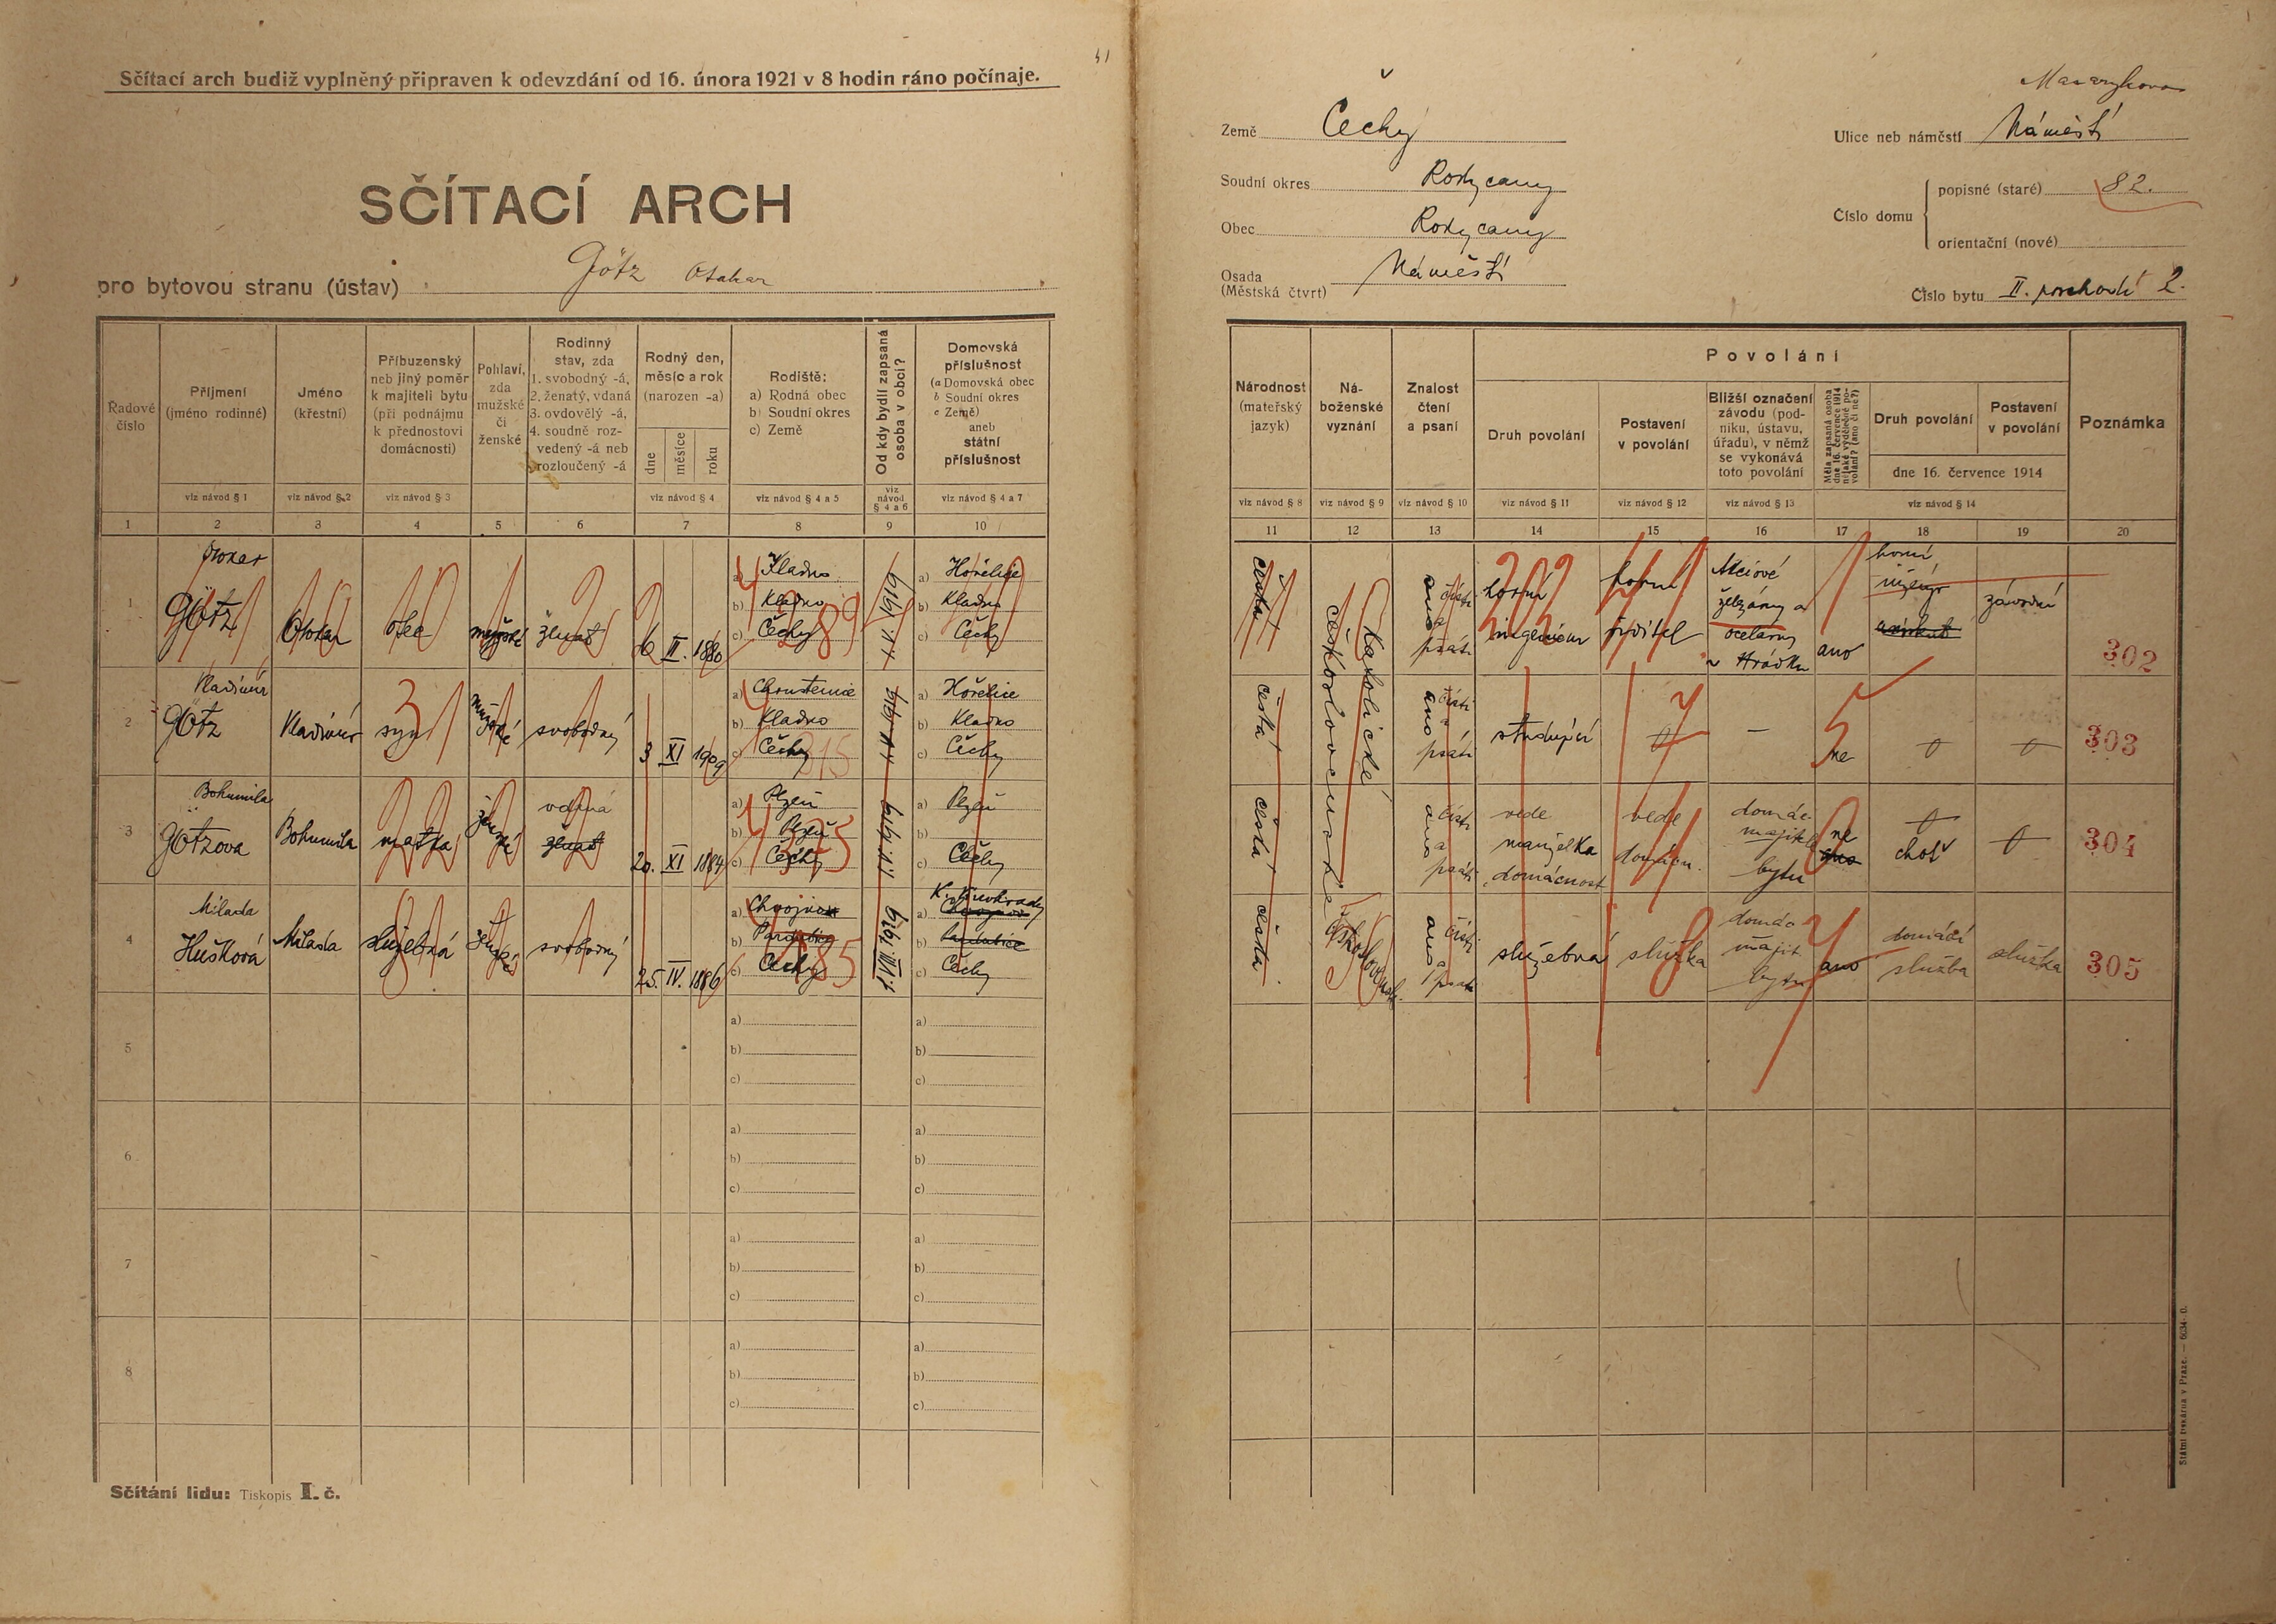 Sčítací arch budiž vyplněný připraven k odevzdání od 16. února 1921 v 8 hodin ráno počínaje.
SČÍTACÍ ARCH
pro bytovou stranu (ústav) Götz Otakar
Řadové číslo
Příjmení (jméno rodinné)
Jméno (křestní)
Příbuzenský neb jiný poměr k majiteli bytu (při podnájmu k přednostovi domácnosti)
Pohlaví, zda mužské či ženské
Rodinný stav, zda 1. svobodný -á, 2. ženatý, vdaná 3. ovdovělý -á, 4. soudně rozvedený -á neb rozloučený -á
Rodný den, měsíc a rok (narozen -a)
dne měsíce roku
Rodiště:
a) Rodná obec
b) Soudní okres
c) Země
Od kdy bydlí zapsaná osoba v obci?
Domovská příslušnost
(a Domovská obec
b Soudní okres
c Země)
aneb státní příslušnost
viz návod § 1 viz návod § 2 viz návod § 3 viz návod § 4 viz návod § 4 a 5 viz návod § 4 a 6 viz návod § 4 a 7
1 2 3 4 5 6 7 8 9 10
1 Götz Otokar otec mužské ženat 6 II. 1880
a) Kladno
b) Kladno
c) Čechy
1./I 1919
a) Hořelice
b) Kladno
c) Čechy
Vladimír
2 Götz Vladimír syn mužské svobodný 3 XI 1909
a) Chrustenice
b) Kladno
c) Čechy
a) Hořelice
b) Kladno
c) Čechy
Bohumila
3 Götzova Bohumila matka ženské vdaná ženat 20. XI 1884
a) Plzeň
b) Plzeň
c) Čechy
a) Plzeň
b)
c) Čechy
Milada
4 Hušková Milada služebná ženské svobodný 25. IV. 1886
a)
b) Pardubice
c) Čechy
a)
b) Pardubice
c) Čechy
5 a) b) c) a) b) c)
6 a) b) c) a) b) c)
7 a) b) c) a) b) c)
8 a) b) c) a) b) c)
Sčítání lidu: Tiskopis I. č.
41
Země Čechy
Soudní okres Rokycany
Obec Rokycany
Osada (Městská čtvrt) Náměstí
Masarykovo
Ulice neb náměstí Náměstí
Číslo domu
popisné (staré) 82.
orientační (nové)
Číslo bytu II. poschodí 2.
Národnost (mateřský jazyk)
Náboženské vyznání
Znalost čtení a psaní
Povolání
Druh povolání
Postavení v povolání
Bližší označení závodu (podniku, ústavu, úřadu), v němž se vykonává toto povolání
Měla zapsaná osoba dne 16. července 1914 nějaké výdělečné povolání? (ano či ne?)
Druh povolání
Postavení v povolání
dne 16. července 1914
Poznámka
viz návod § 8 viz návod § 9 viz návod § 10 viz návod § 11 viz návod § 12 viz návod § 13 viz návod § 14
11 12 13 14 15 16 17 18 19 20
česká
československé
katolické
ano čísti a psáti
horní
ředitel
Akciové železárny a ocelárny v Hrádku
ano
horní
závodní
302
česká
ano čísti a psáti
studující
ne
303
česká
ano čísti a psáti
vede manželka domácnost
vede
bytu
ne ano
choť
304
česká
ano čísti a psáti
služebná
služka
ano
domácí služba
služka
305
Státní tiskárna v Praze. — 6634-0.